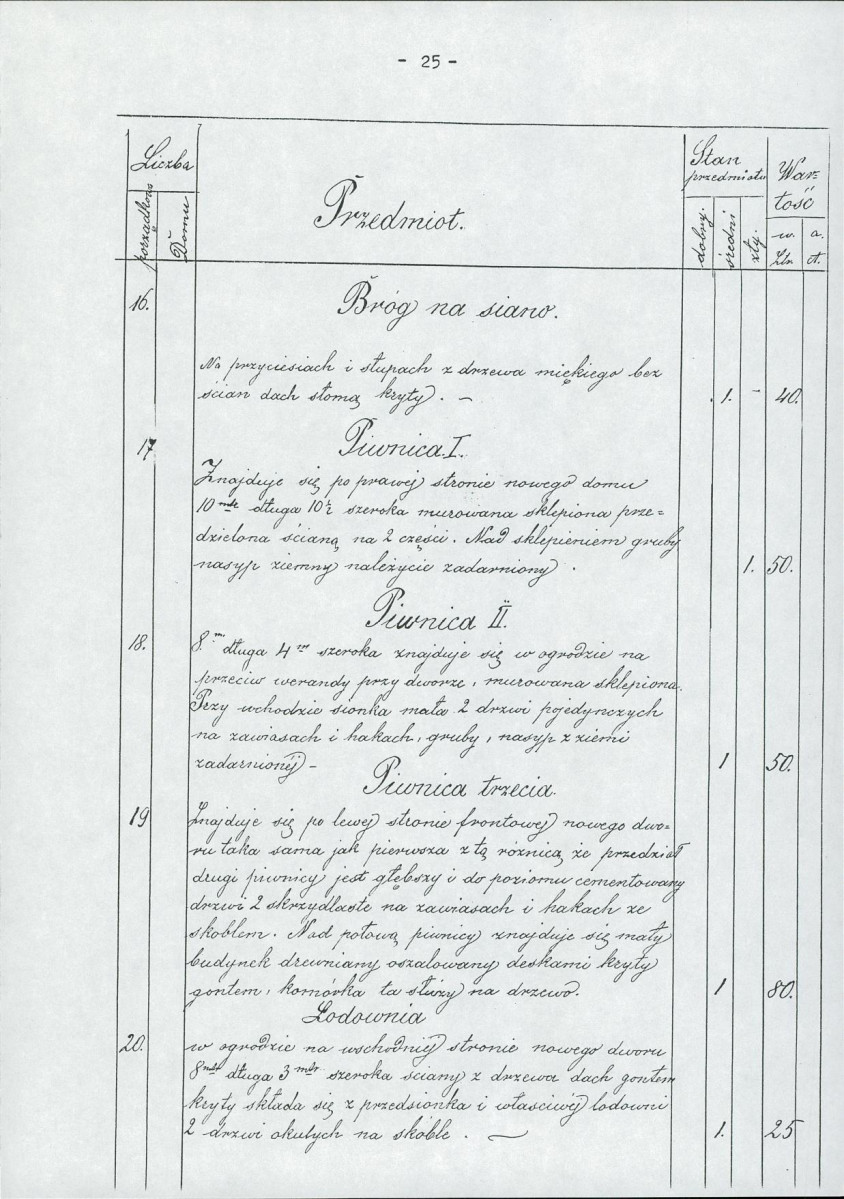 - 25 -
Liczba
porządkowa
Domu
Przedmiot.
Stan
przedmiotu
dobry.
średni
zły.
War=
tość
w.
złr
a.
ct.
16.
Bróg na siano.
Na przyciesiach i słupach z drzewa miękiego bez
ścian dach słomą kryty. — 1. - 40.
17
Piwnica I.
Znajduje się po prawej stronie nowego domu
10 mtr długa 10½ szeroka murowana sklepiona prze=
dzielona ścianą na 2 części. Nad sklepieniem gruby
nasyp ziemny należycie zadarniony. 1. 50.
Piwnica II.
18. 8 m. długa 4 m szeroka znajduje się w ogrodzie na
przeciw werandy przy dworze, murowana sklepiona.
Przy wchodzie sionka mała 2 drzwi pojedynczych
na zawiasach i hakach, gruby, nasyp z ziemi
zadarnionéj - 1 50.
Piwnica trzecia.
19 Znajduje się po lewej stronie frontowej nowego dwo-
ru taka sama jak pierwsza z tą różnicą że przedział
drugi piwnicy jest głębszy i do poziomu cementowany
drzwi 2 skrzydlaste na zawiasach i hakach ze
skoblem. Nad połową piwnicy znajduje się mały
budynek drewniany oszalowany deskami kryty
gontem, komórka ta służy na drzewo. 1 80.
Lodownia
20. w ogrodzie na wschodniéj stronie nowego dworu
8 mtr długa 3 mtr szeroka ściany z drzewa dach gontem
kryty składa się z przedsionka i właściwéj lodowni
2 drzwi okutych na skoble. — 1. 25